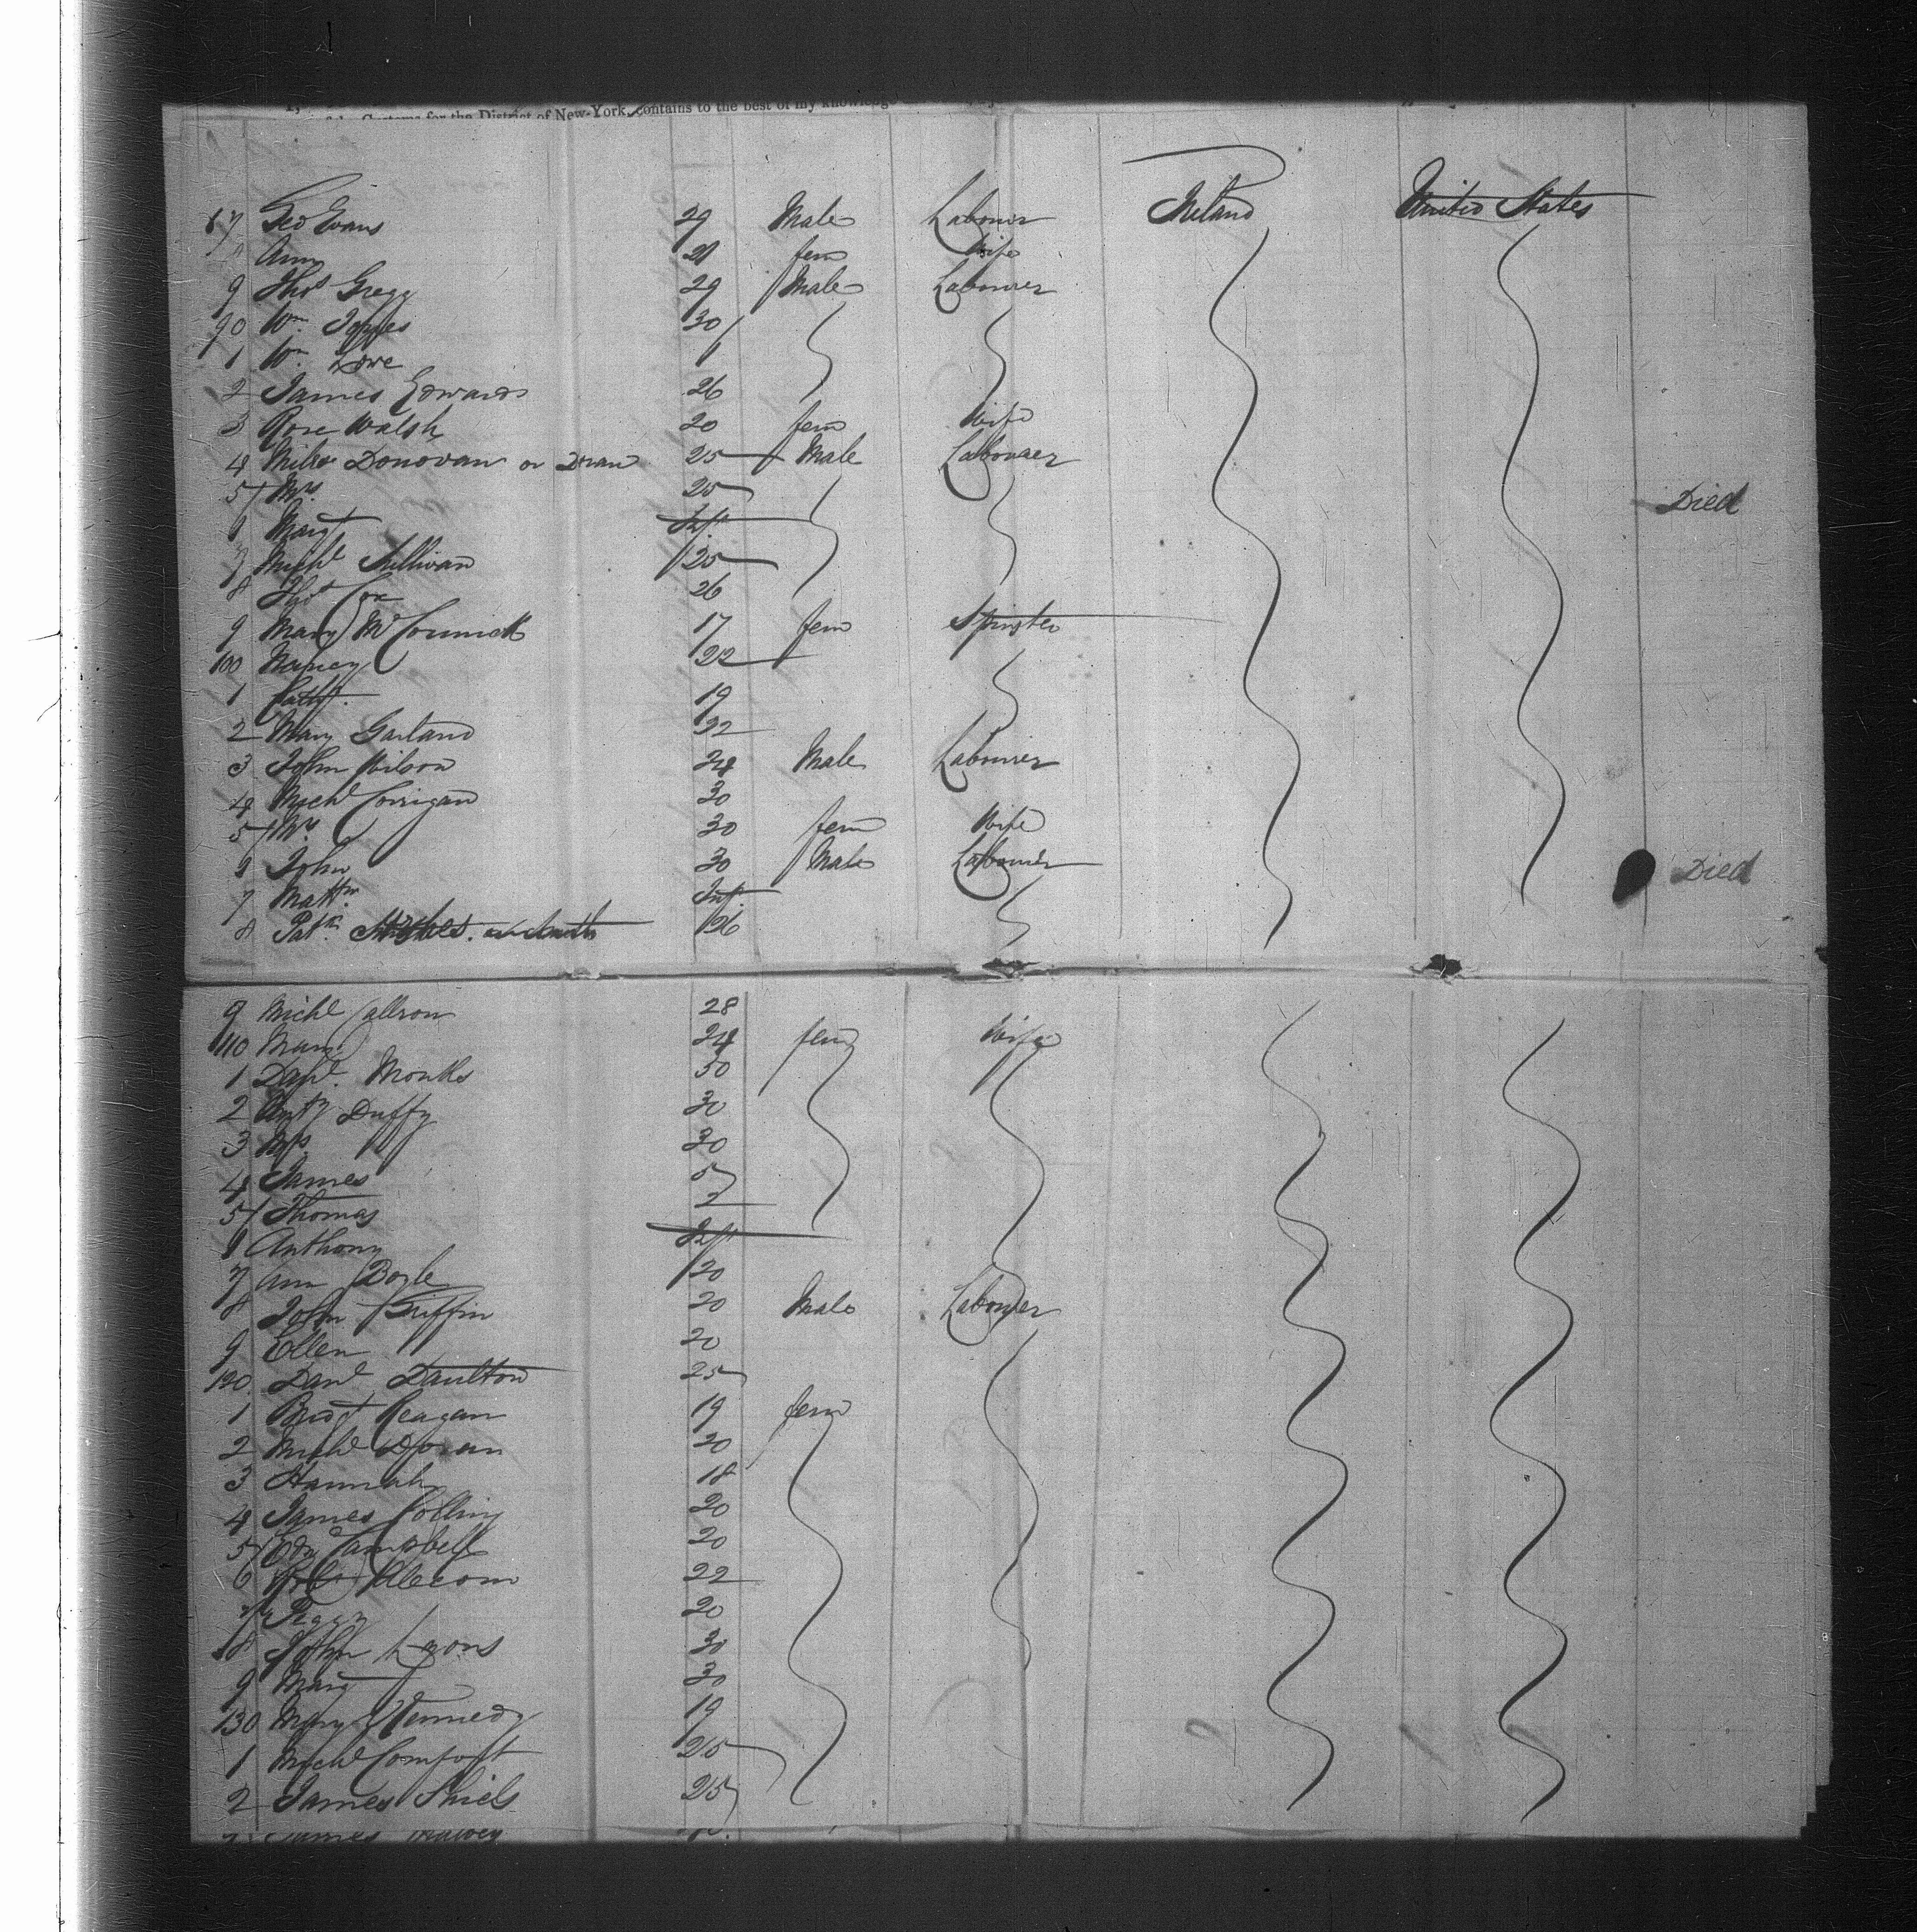 of the Customs for the District of New-York, contains to the best of my knowledge
87 Geo Evans 29 Male Labourer Ireland United States
8 Amy 21 fem Wife
9 Thos Gregg 29 Male Labourer
90 Wm 30
1 Wm Lowe 1
2 James Edwards 26
3 Rose Walsh 20 fem Wife
4 Miles Donovan or 25 Male Labourer
5 Mrs 25 Died
Margt Inft
7 Michl Sullivan 25
8 Thos Cox 26
9 Mary McCormick 17 fem Spinster
100 Nancy 22
1 Cath 19
2 Mary Garland 22
3 John Wilson 24 Male Labourer
4 Michl Corrigan 30
5 Mrs 30 fem Wife
John 30 Male Labourer Died
7 Matthw Inft
8 Patk 26
9 Michl 28
110 Mary 24 fem Wife
1 Danl. Monks 50
2 Anty Duffy 30
3 Mrs 30
4 James 5
5 Thomas 2
Anthony Inft
7 Ann Boyle 20
8 John Griffin 20 Male Labourer
9 Ellen 20
120 Danl Daulton 25
1 Bridgt Reagan 19 fem
2 Michl Doran 20
3 Hannah 18
4 James Collins 20
5 Edwd Campbell 20
6 22
7 Peggy 20
8 John Lyons 30
9 Margt 30
130 Mary Kennedy 19
1 Michl Comfort 25
2 James Shiels 25
James